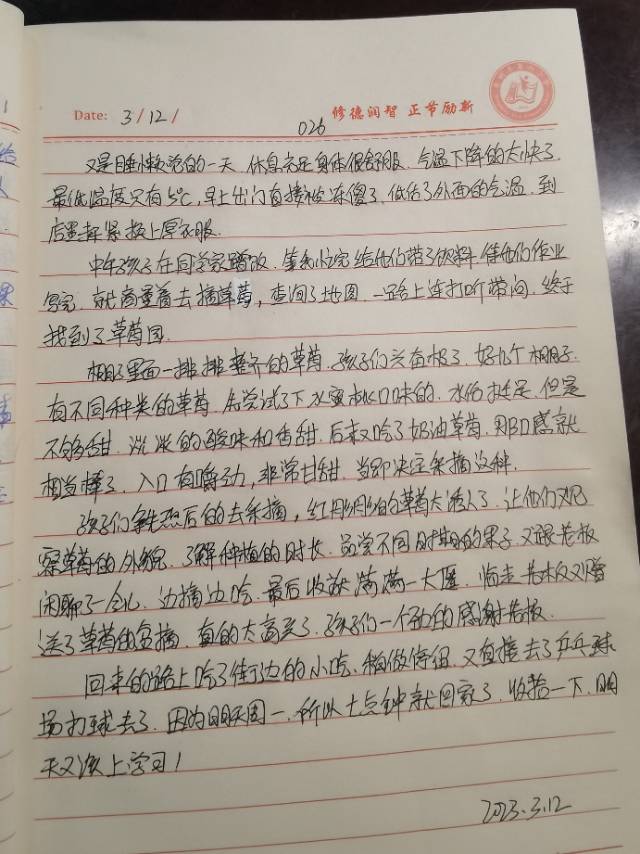 Date: 3/12/
026
修德润智 正节励新
又是睡懒觉的一天 休息充足身体很舒服. 气温下降的太快了
最低温度只有5℃, 早上出门直接被冻傻了, 低估了外面的气温, 到
店里赶紧换上厚衣服.
中午孩子在同学家蹭饭. 等我忙完给他们带了饮料. 催他们作业
写完 就商量着去摘草莓, 查询了地图 一路上连打听带问. 终于
找到了草莓园.
棚子里面一排排整齐的草莓. 孩子们兴奋极了. 好几个棚子.
有不同种类的草莓. 先尝试了下水蜜桃口味的, 水份挺足. 但是
不够甜. 淡淡的酸味和香甜. 后来又吃了奶油草莓. 那口感就
相当棒了. 入口有嚼劲, 非常甘甜. 当即决定采摘这种.
孩子们争先恐后的去采摘, 红彤彤的草莓太诱人了. 让他们观
察草莓的外貌. 了解种植的时长. 品尝不同时期的果子 又跟老板
闲聊了一会儿. 边摘边吃 最后收获满满一大筐. 临走 老板又赠
送了草莓的盆摘, 真的太高兴了. 孩子们一个劲的感谢老板.
回来的路上吃了街边的小吃. 稍做停留 又直接去了乒乓球
场打球去了. 因为明天周一, 所以七点钟就回家了. 收拾一下, 明
天又该上学习!
2023.3.12